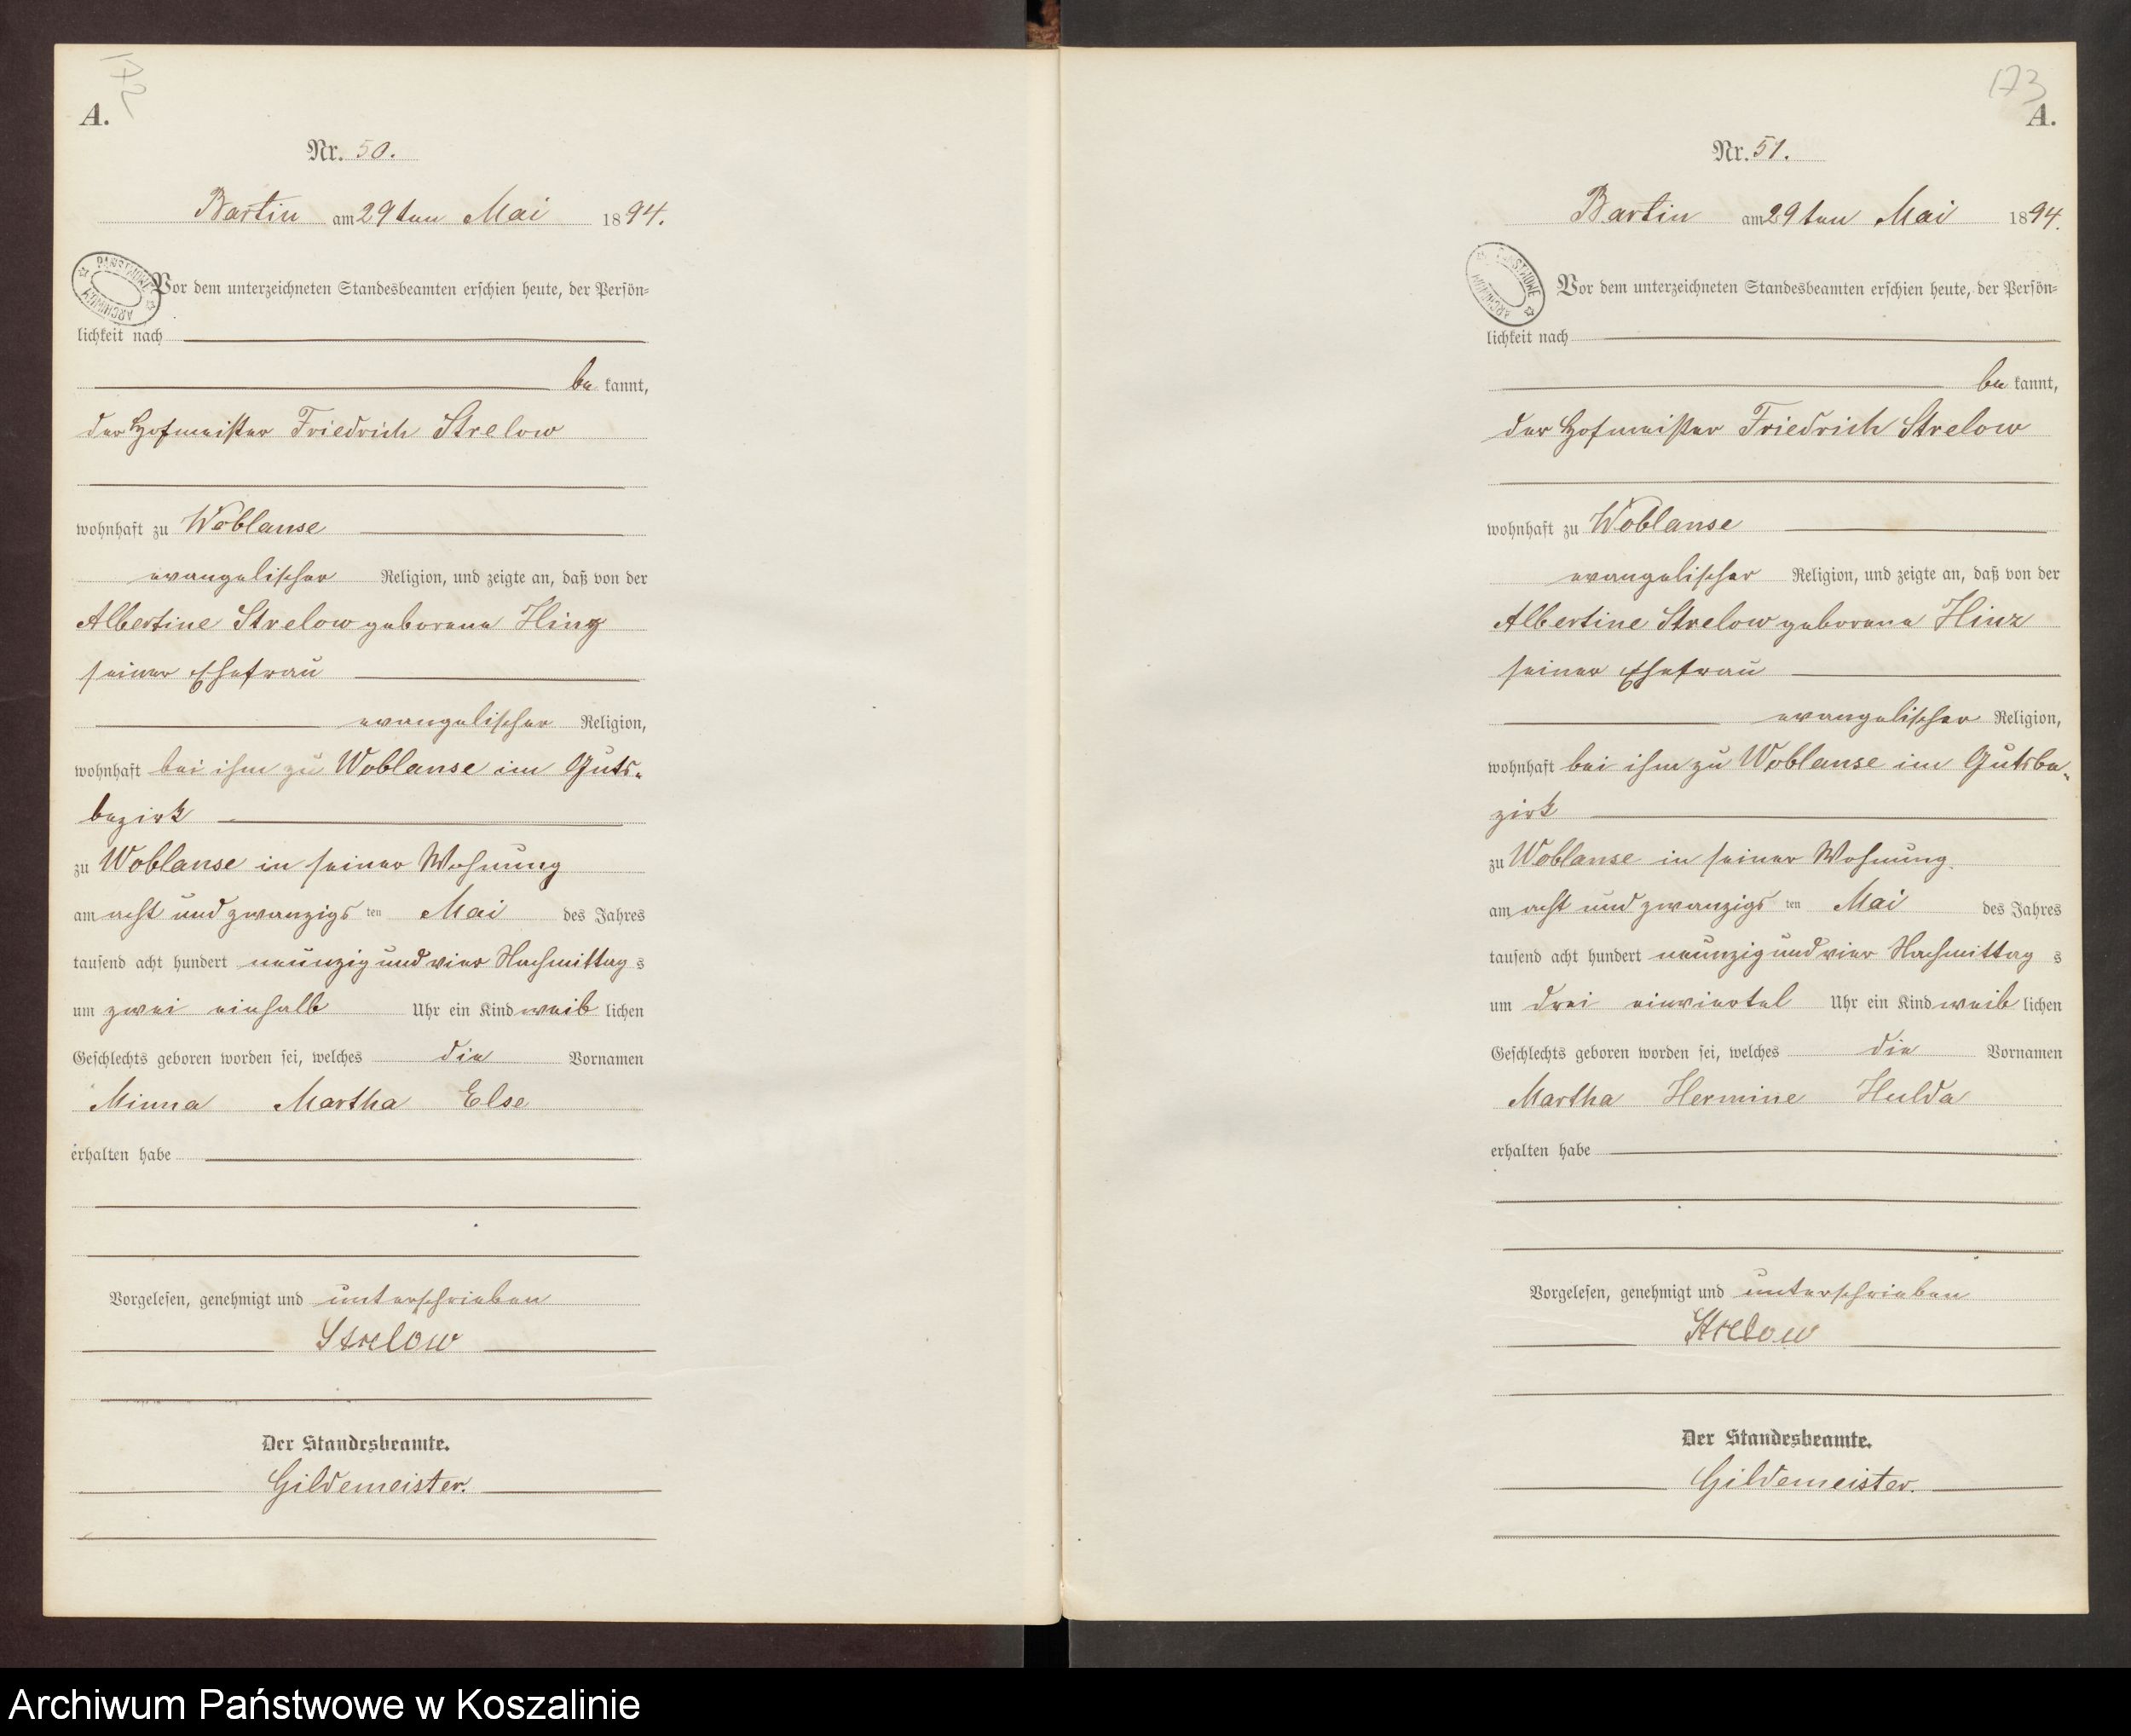 172
A.
Nr. 50.
Bartin am 29ten Mai 1894.
PAŃSTWOWE ARCHIWUM
Vor dem unterzeichneten Standesbeamten erschien heute, der Persön-
lichkeit nach
be kannt,
der Hofmeister Friedrich Strelow
wohnhaft zu Woblanse
evangelischer Religion, und zeigte an, daß von der
Albertine Strelow geborene Hinz
seiner Ehefrau
evangelischer Religion,
wohnhaft bei ihm zu Woblanse im Guts-
bezirk
zu Woblanse in seiner Wohnung
am acht und zwanzigs ten Mai des Jahres
tausend acht hundert neunzig und vier Nachmittag s
um zwei einhalb Uhr ein Kind weib lichen
Geschlechts geboren worden sei, welches die Vornamen
Minna Martha Else
erhalten habe
Vorgelesen, genehmigt und unterschrieben
Strelow
Der Standesbeamte.
Gildemeister.
173
A.
Nr. 51.
Bartin am 29ten Mai 1894.
PAŃSTWOWE ARCHIWUM
Vor dem unterzeichneten Standesbeamten erschien heute, der Persön-
lichkeit nach
be kannt,
der Hofmeister Friedrich Strelow
wohnhaft zu Woblanse
evangelischer Religion, und zeigte an, daß von der
Albertine Strelow geborene Hinz
seiner Ehefrau
evangelischer Religion,
wohnhaft bei ihm zu Woblanse im Gutsbe-
zirk
zu Woblanse in seiner Wohnung
am acht und zwanzigs ten Mai des Jahres
tausend acht hundert neunzig und vier Nachmittag s
um drei einviertel Uhr ein Kind weib lichen
Geschlechts geboren worden sei, welches die Vornamen
Martha Hermine Hulda
erhalten habe
Vorgelesen, genehmigt und unterschrieben
Strelow
Der Standesbeamte.
Gildemeister.
Archiwum Państwowe w Koszalinie